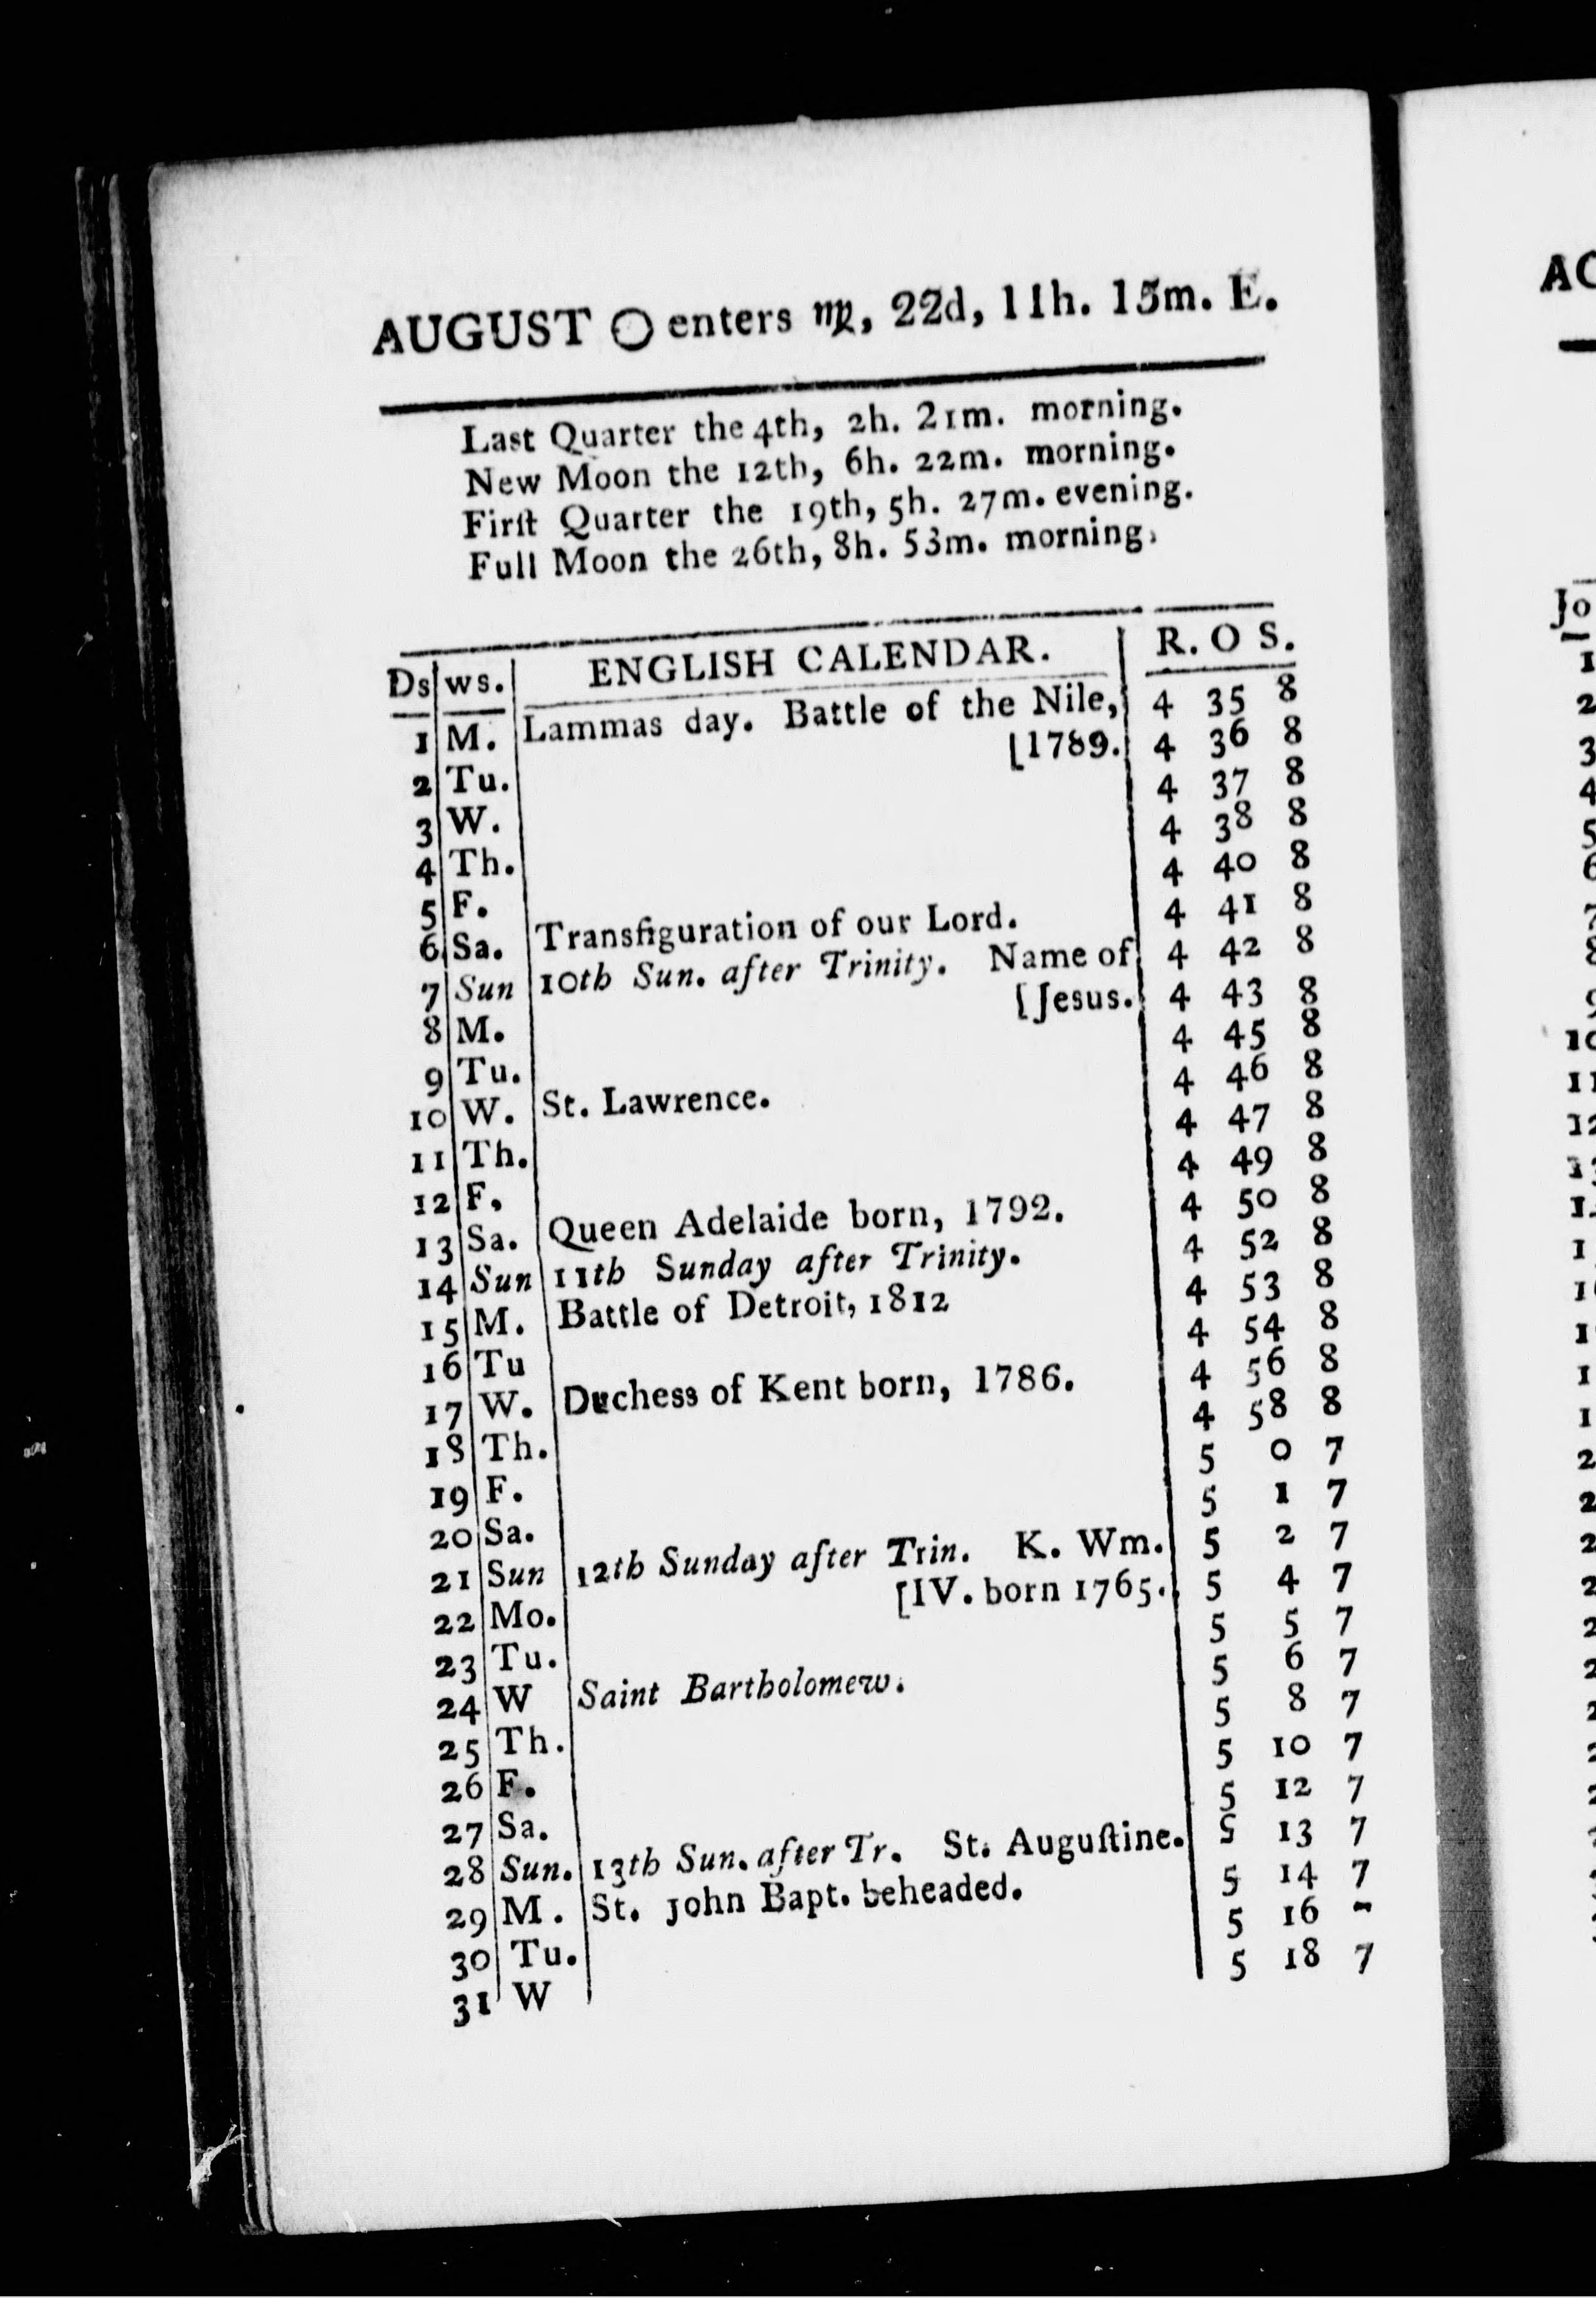 AUGUST ◯ enters ♍, 22d, 11h. 15m. E.
Last Quarter the 4th, 2h. 21m. morning.
New Moon the 12th, 6h. 22m. morning.
Firſt Quarter the 19th, 5h. 27m. evening.
Full Moon the 26th, 8h. 53m. morning.
Ds ws. ENGLISH CALENDAR. R. O S.
1 M. Lammas day. Battle of the Nile, 4 35 8
2 Tu. [1789. 4 36 8
3 W. 4 37 8
4 Th. 4 38 8
5 F. 4 40 8
6 Sa. Transfiguration of our Lord. 4 41 8
7 Sun 10th Sun. after Trinity. Name of 4 42 8
8 M. [Jesus. 4 43 8
9 Tu. 4 45 8
10 W. St. Lawrence. 4 46 8
11 Th. 4 47 8
12 F. 4 49 8
13 Sa. Queen Adelaide born, 1792. 4 50 8
14 Sun 11th Sunday after Trinity. 4 52 8
15 M. Battle of Detroit, 1812 4 53 8
16 Tu 4 54 8
17 W. Duchess of Kent born, 1786. 4 56 8
18 Th. 4 58 8
19 F. 5 0 7
20 Sa. 5 1 7
21 Sun 12th Sunday after Trin. K. Wm. 5 2 7
22 Mo. [IV. born 1765. 5 4 7
23 Tu. 5 5 7
24 W Saint Bartholomew. 5 6 7
25 Th. 5 8 7
26 F. 5 10 7
27 Sa. 5 12 7
28 Sun. 13th Sun. after Tr. St. Auguſtine. 5 13 7
29 M. St. John Bapt. beheaded. 5 14 7
30 Tu. 5 16
31 W 5 18 7